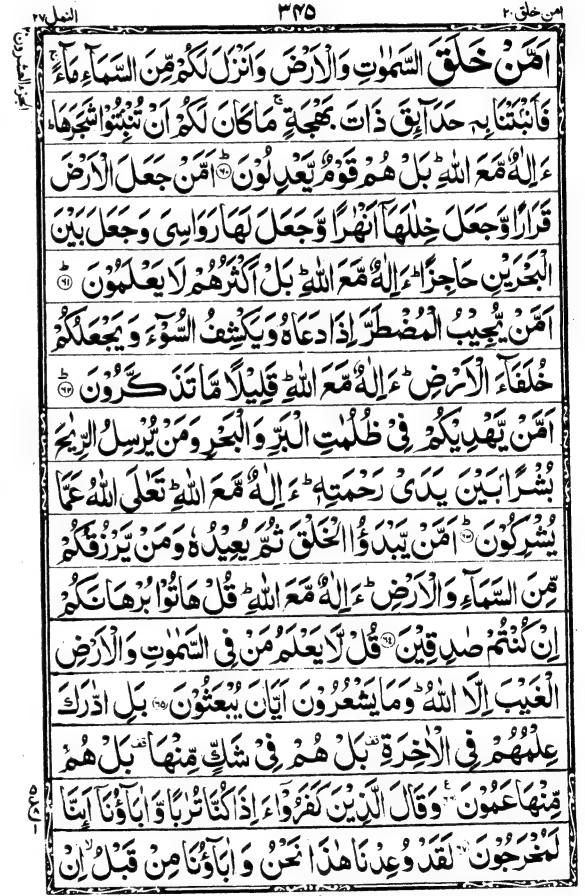 امن خلق ٢٠ ٣٤٥ النمل ٢٧
اَمَّنْ خَلَقَ السَّمٰوٰتِ وَالْاَرْضَ وَاَنْزَلَ لَكُمْ مِّنَ السَّمَآءِ مَآءً ۚ
فَاَنْۢبَتْنَا بِهٖ حَدَآئِقَ ذَاتَ بَهْجَةٍ ۚ مَا كَانَ لَكُمْ اَنْ تُنْۢبِتُوْا شَجَرَهَا ؕ
ءَاِلٰهٌ مَّعَ اللّٰهِ ؕ بَلْ هُمْ قَوْمٌ يَّعْدِلُوْنَ ؕ‏﴿۶۰﴾ اَمَّنْ جَعَلَ الْاَرْضَ
قَرَارًا وَّجَعَلَ خِلٰلَهَاۤ اَنْهٰرًا وَّجَعَلَ لَهَا رَوَاسِىَ وَجَعَلَ بَيْنَ
الْبَحْرَيْنِ حَاجِزًا ؕ ءَاِلٰهٌ مَّعَ اللّٰهِ ؕ بَلْ اَكْثَرُهُمْ لَا يَعْلَمُوْنَ ؕ‏﴿۶۱﴾
اَمَّنْ يُّجِيْبُ الْمُضْطَرَّ اِذَا دَعَاهُ وَيَكْشِفُ السُّوْٓءَ وَيَجْعَلُكُمْ
خُلَفَآءَ الْاَرْضِ ؕ ءَاِلٰهٌ مَّعَ اللّٰهِ ؕ قَلِيْلًا مَّا تَذَكَّرُوْنَ ؕ‏﴿۶۲﴾
اَمَّنْ يَّهْدِيْكُمْ فِىْ ظُلُمٰتِ الْبَرِّ وَالْبَحْرِ وَمَنْ يُّرْسِلُ الرِّيٰحَ
بُشْرًۢا بَيْنَ يَدَىْ رَحْمَتِهٖ ؕ ءَاِلٰهٌ مَّعَ اللّٰهِ ؕ تَعٰلَى اللّٰهُ عَمَّا
يُشْرِكُوْنَ ؕ‏﴿۶۳﴾ اَمَّنْ يَّبْدَؤُا الْخَلْقَ ثُمَّ يُعِيْدُهٗ وَمَنْ يَّرْزُقُكُمْ
مِّنَ السَّمَآءِ وَالْاَرْضِ ؕ ءَاِلٰهٌ مَّعَ اللّٰهِ ؕ قُلْ هَاتُوْا بُرْهَانَكُمْ
اِنْ كُنْتُمْ صٰدِقِيْنَ ﴿۶۴﴾ قُلْ لَّا يَعْلَمُ مَنْ فِى السَّمٰوٰتِ وَالْاَرْضِ
الْغَيْبَ اِلَّا اللّٰهُ ؕ وَمَا يَشْعُرُوْنَ اَيَّانَ يُبْعَثُوْنَ ﴿۶۵﴾ بَلِ ادّٰرَكَ
عِلْمُهُمْ فِى الْاٰخِرَةِ بَلْ هُمْ فِىْ شَكٍّ مِّنْهَا بَلْ هُمْ
مِّنْهَا عَمُوْنَ وَقَالَ الَّذِيْنَ كَفَرُوْۤا ءَاِذَا كُنَّا تُرٰبًا وَّاٰبَآؤُنَاۤ اَئِنَّا
لَمُخْرَجُوْنَ لَقَدْ وُعِدْنَا هٰذَا نَحْنُ وَاٰبَآؤُنَا مِنْ قَبْلُ ۙ اِنْ